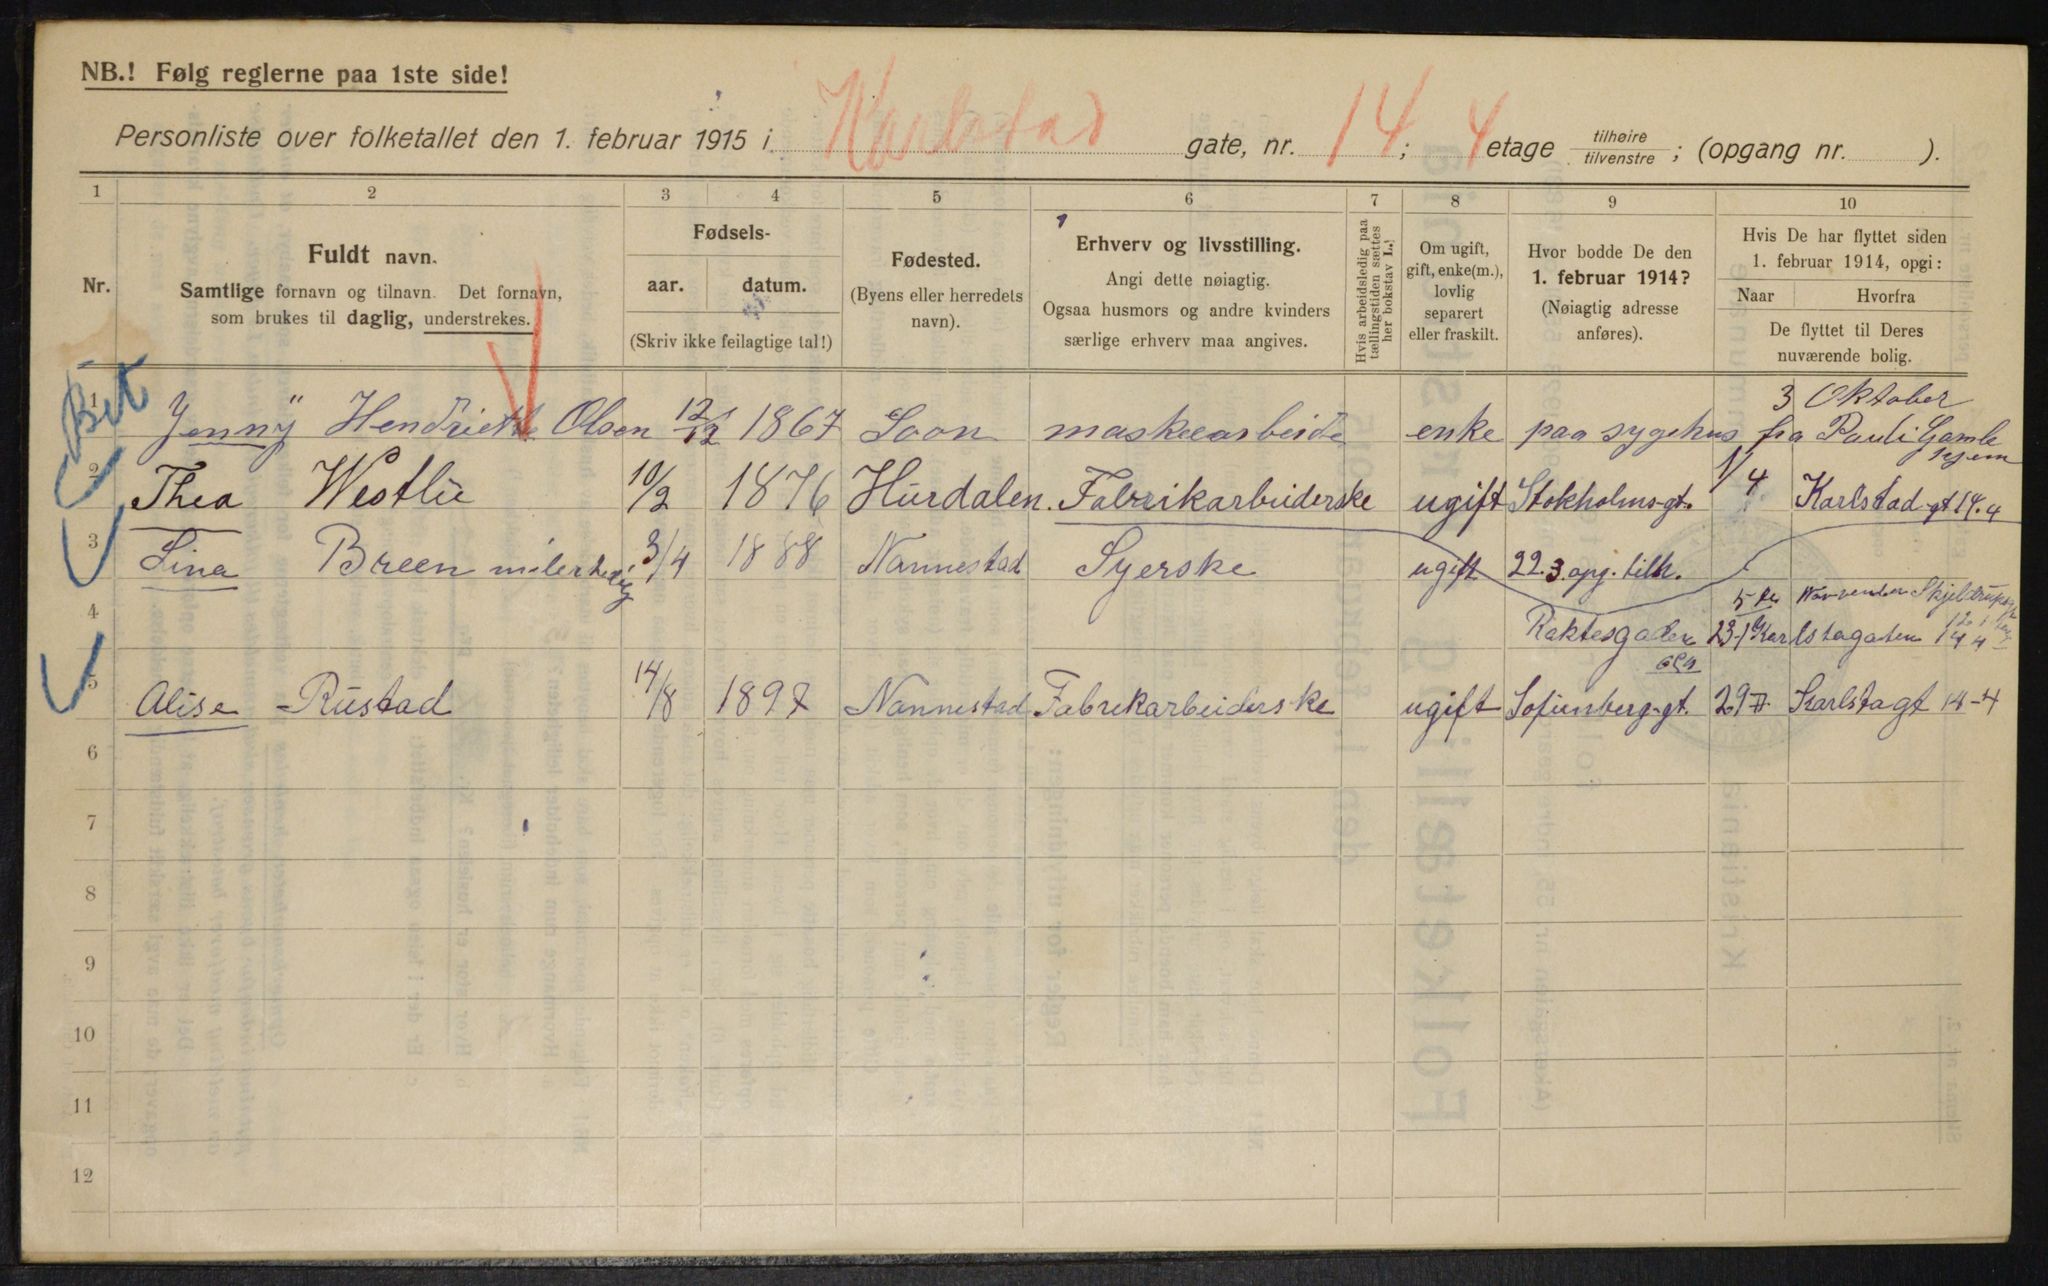 NB.! Følg reglerne paa 1ste side!
Personliste over folketallet den 1. februar 1915 i Karlstad gate, nr. 14; 4 etage tilhøire / tilvenstre; (opgang nr. ).
1 2 3 4 5 6 7 8 9 10
Nr.
Fuldt navn.
Samtlige fornavn og tilnavn. Det fornavn,
som brukes til daglig, understrekes.
Fødsels-
aar. datum.
(Skriv ikke feilagtige tal!)
Fødested.
(Byens eller herredets
navn).
Erhverv og livsstilling.
Angi dette nøiagtig.
Ogsaa husmors og andre kvinders
særlige erhverv maa angives.
Hvis arbeidsledig paa
tællingstiden sættes
her bokstav L.)
Om ugift,
gift, enke(m.),
lovlig
separert
eller fraskilt.
Hvor bodde De den
1. februar 1914?
(Nøiagtig adresse
anføres).
Hvis De har flyttet siden
1. februar 1914, opgi:
Naar Hvorfra
De flyttet til Deres
nuværende bolig.
Bet
3 Oktober
1 Jenny Hendriette Olsen 12/12 1867 Soon enke paa sygehus fra Pauli Gamle
hjem
2 Thea Westlie 10/2 1876 Hurdalen. Fabrikarbeiderske ugift Stokholms-gt. 1/4 Karlstad-gt 14.4
3 Lina Breen 3/4 1888 Nannestad Syerske ugift 22.3.opg. tilh.
4 5 November
23-1 Karlstagaten 14 4
5 Alise Rustad 14/8 1897 Nannestad Fabrikarbeiderske ugift Sofienberg-gt. 29 Karlstagt 14-4
6
7
8
9
10
11
12